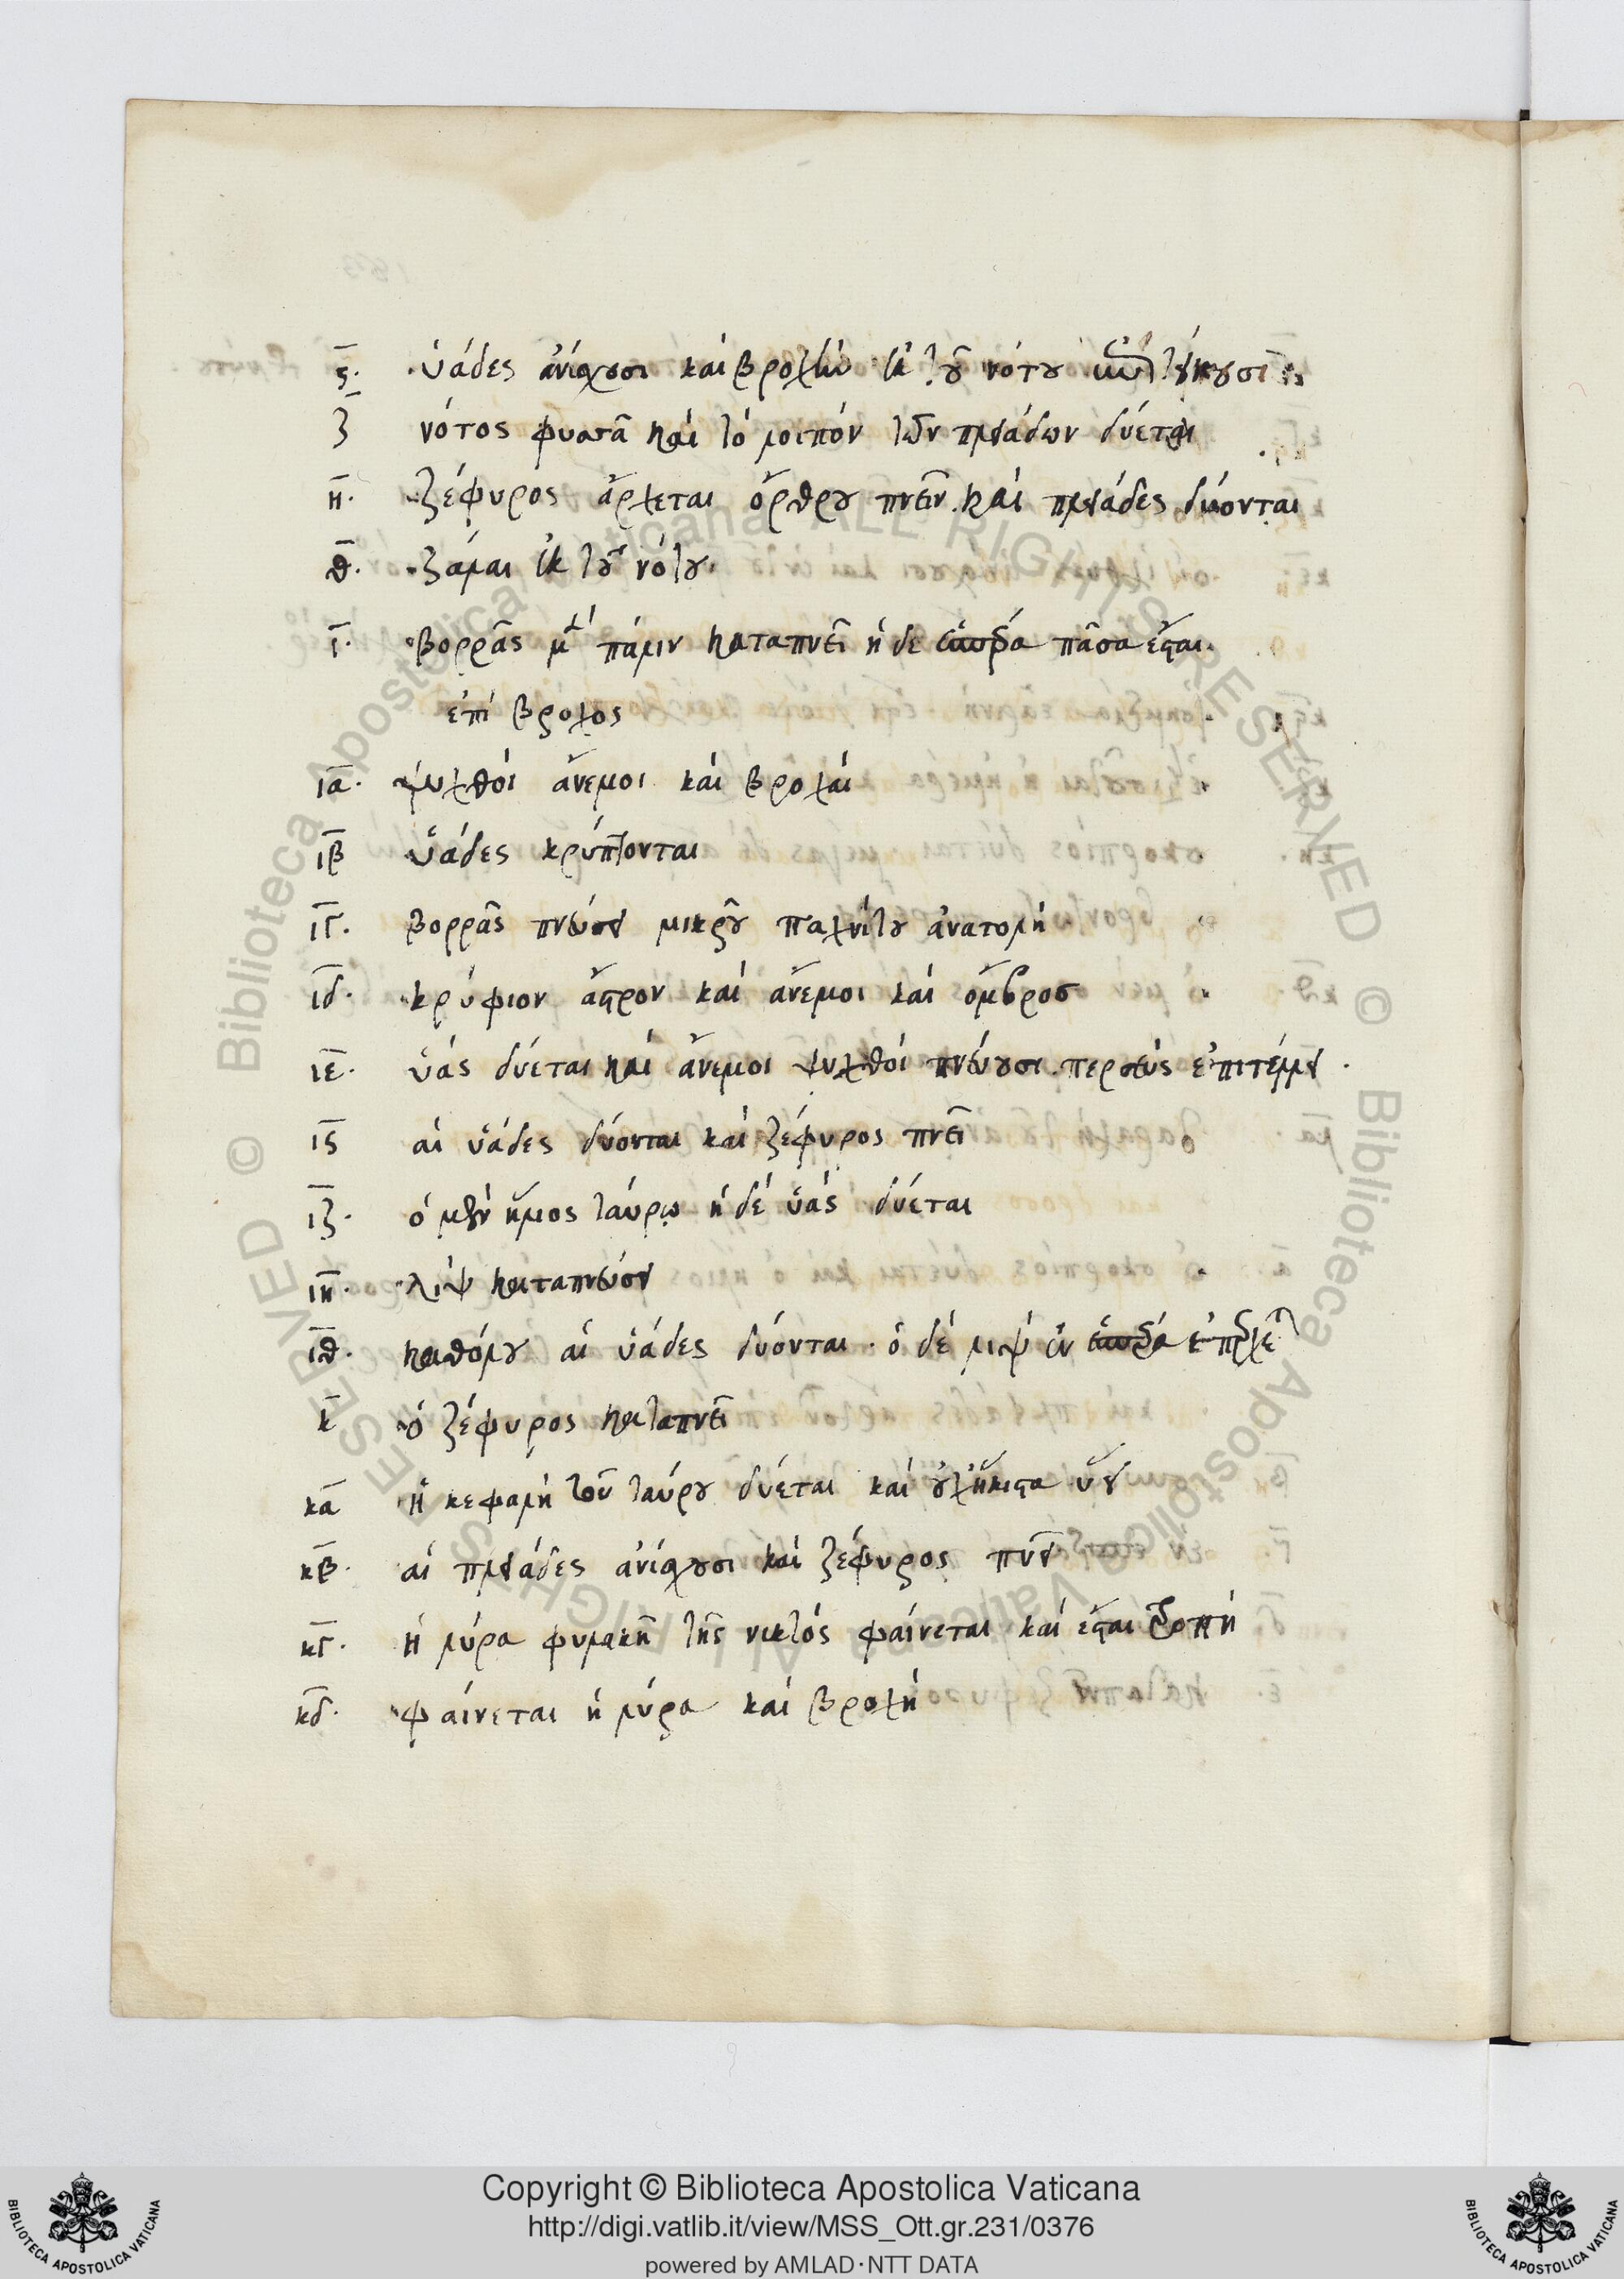 ϛ. ὑάδες ἀνίσχουσι καὶ βροχὴν ἐκ τοῦ νότου
ζ νότος φυσᾶ καὶ τὸ λοιπὸν τῶν πλειάδων δύεται
η. ζέφυρος ἄρχεται ὄρθρου πνεῖν καὶ πλειάδες δύονται
θ. ζάλαι ἐκ τοῦ νότου.
ι. βορρᾶς μὲν πάλιν καταπνεῖ ἡ δὲ πᾶσα ἔσται
ἐπὶ βροχος
ια. ψυχθοὶ ἄνεμοι καὶ βροχαὶ
ιβ ὑάδες κρύπτονται
ιγ. βορρᾶς πνεύσει μικροῦ παχνίτου ἀνατολὴ
ιδ. κρύφιον ἄστρον καὶ ἄνεμοι καὶ ὄμβροσ
ιε. ὑὰς δύεται καὶ ἄνεμοι ψυχθοὶ πνέουσι. περσεὺς ἐπιτέλλει.
ιϛ αἱ ὑάδες δύονται καὶ ζέφυρος πνεῖ
ιζ. ὁ μὲν ἥλιος ταύρω ἡ δὲ ὑὰς δύεται
ιη. λὶψ καταπνεύσει
ιθ. καθόλου αἱ ὑάδες δύονται. ὁ δὲ λὶψ ἐν
κ ὁ ζέφυρος καταπνεῖ
κα ἡ κεφαλὴ τοῦ ταύρου δύεται καὶ οὐχήκιστα ὕει
κβ. αἱ πλειάδες ἀνίσχουσι καὶ ζέφυρος πνεῖ
κγ. ἡ λύρα φυλακῆ τῆς νυκτὸς φαίνεται καὶ ἔσται τροπὴ
κδ. φαίνεται ἡ λύρα καὶ βροχὴ
Copyright © Biblioteca Apostolica Vaticana
http://digi.vatlib.it/view/MSS_Ott.gr.231/0376
powered by AMLAD·NTT DATA
BIBLIOTECA APOSTOLICA VATICANA
BIBLIOTECA APOSTOLICA VATICANA
© Biblioteca Apostolica Vaticana ALL RIGHTS RESERVED © Biblioteca Apostolica Vaticana ALL RIGHTS RESERVED